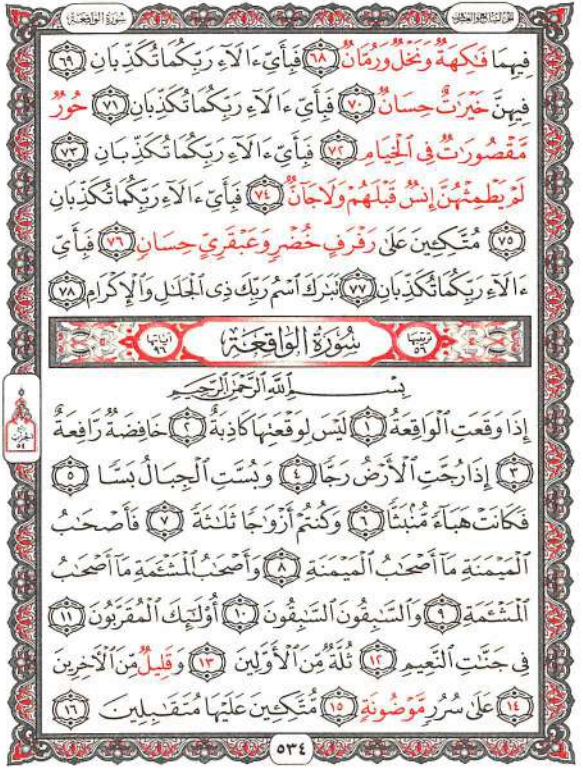 الجزء السابع والعشرون
سورة الواقعة
فِيهِمَا فَٰكِهَةٌ وَنَخْلٌ وَرُمَّانٌ ٦٨ فَبِأَيِّ ءَالَآءِ رَبِّكُمَا تُكَذِّبَانِ ٦٩
فِيهِنَّ خَيْرَٰتٌ حِسَانٌ ٧٠ فَبِأَيِّ ءَالَآءِ رَبِّكُمَا تُكَذِّبَانِ ٧١ حُورٌ
مَّقْصُورَٰتٌ فِى ٱلْخِيَامِ ٧٢ فَبِأَيِّ ءَالَآءِ رَبِّكُمَا تُكَذِّبَانِ ٧٣
لَمْ يَطْمِثْهُنَّ إِنسٌ قَبْلَهُمْ وَلَا جَآنٌّ ٧٤ فَبِأَيِّ ءَالَآءِ رَبِّكُمَا تُكَذِّبَانِ
٧٥ مُتَّكِـِٔينَ عَلَىٰ رَفْرَفٍ خُضْرٍ وَعَبْقَرِىٍّ حِسَانٍ ٧٦ فَبِأَيِّ
ءَالَآءِ رَبِّكُمَا تُكَذِّبَانِ ٧٧ تَبَٰرَكَ ٱسْمُ رَبِّكَ ذِى ٱلْجَلَٰلِ وَٱلْإِكْرَامِ ٧٨
ترتيبها ٥٦ سُورَةُ الوَاقِعَة آياتها ٩٦
بِسْمِ ٱللَّهِ ٱلرَّحْمَٰنِ ٱلرَّحِيمِ
إِذَا وَقَعَتِ ٱلْوَاقِعَةُ ١ لَيْسَ لِوَقْعَتِهَا كَاذِبَةٌ ٢ خَافِضَةٌ رَّافِعَةٌ
٣ إِذَا رُجَّتِ ٱلْأَرْضُ رَجًّا ٤ وَبُسَّتِ ٱلْجِبَالُ بَسًّا ٥
فَكَانَتْ هَبَآءً مُّنۢبَثًّا ٦ وَكُنتُمْ أَزْوَٰجًا ثَلَٰثَةً ٧ فَأَصْحَٰبُ
ٱلْمَيْمَنَةِ مَآ أَصْحَٰبُ ٱلْمَيْمَنَةِ ٨ وَأَصْحَٰبُ ٱلْمَشْـَٔمَةِ مَآ أَصْحَٰبُ
ٱلْمَشْـَٔمَةِ ٩ وَٱلسَّٰبِقُونَ ٱلسَّٰبِقُونَ ١٠ أُو۟لَٰٓئِكَ ٱلْمُقَرَّبُونَ ١١
فِى جَنَّٰتِ ٱلنَّعِيمِ ١٢ ثُلَّةٌ مِّنَ ٱلْأَوَّلِينَ ١٣ وَقَلِيلٌ مِّنَ ٱلْءَاخِرِينَ
١٤ عَلَىٰ سُرُرٍ مَّوْضُونَةٍ ١٥ مُّتَّكِـِٔينَ عَلَيْهَا مُتَقَٰبِلِينَ ١٦
الحزب ٥٤
٥٣٤